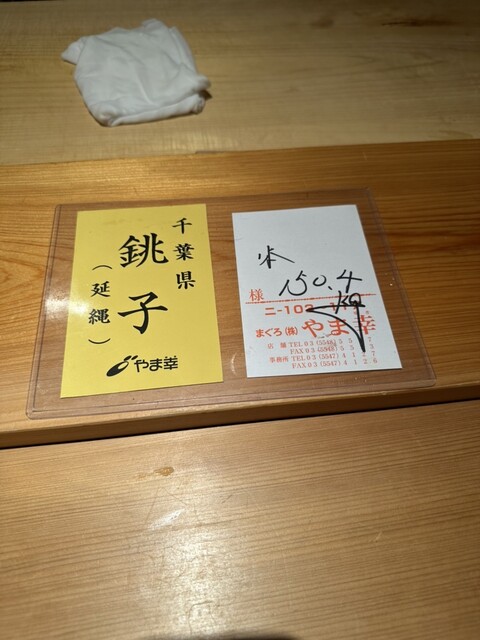 千葉県
銚子
(延縄)
やま幸
本
150.4
kg
様
まぐろ(株)やま幸
店舗 TEL03(5548)
FAX03(5548)
事務所 TEL03(5547)
FAX03(5547)